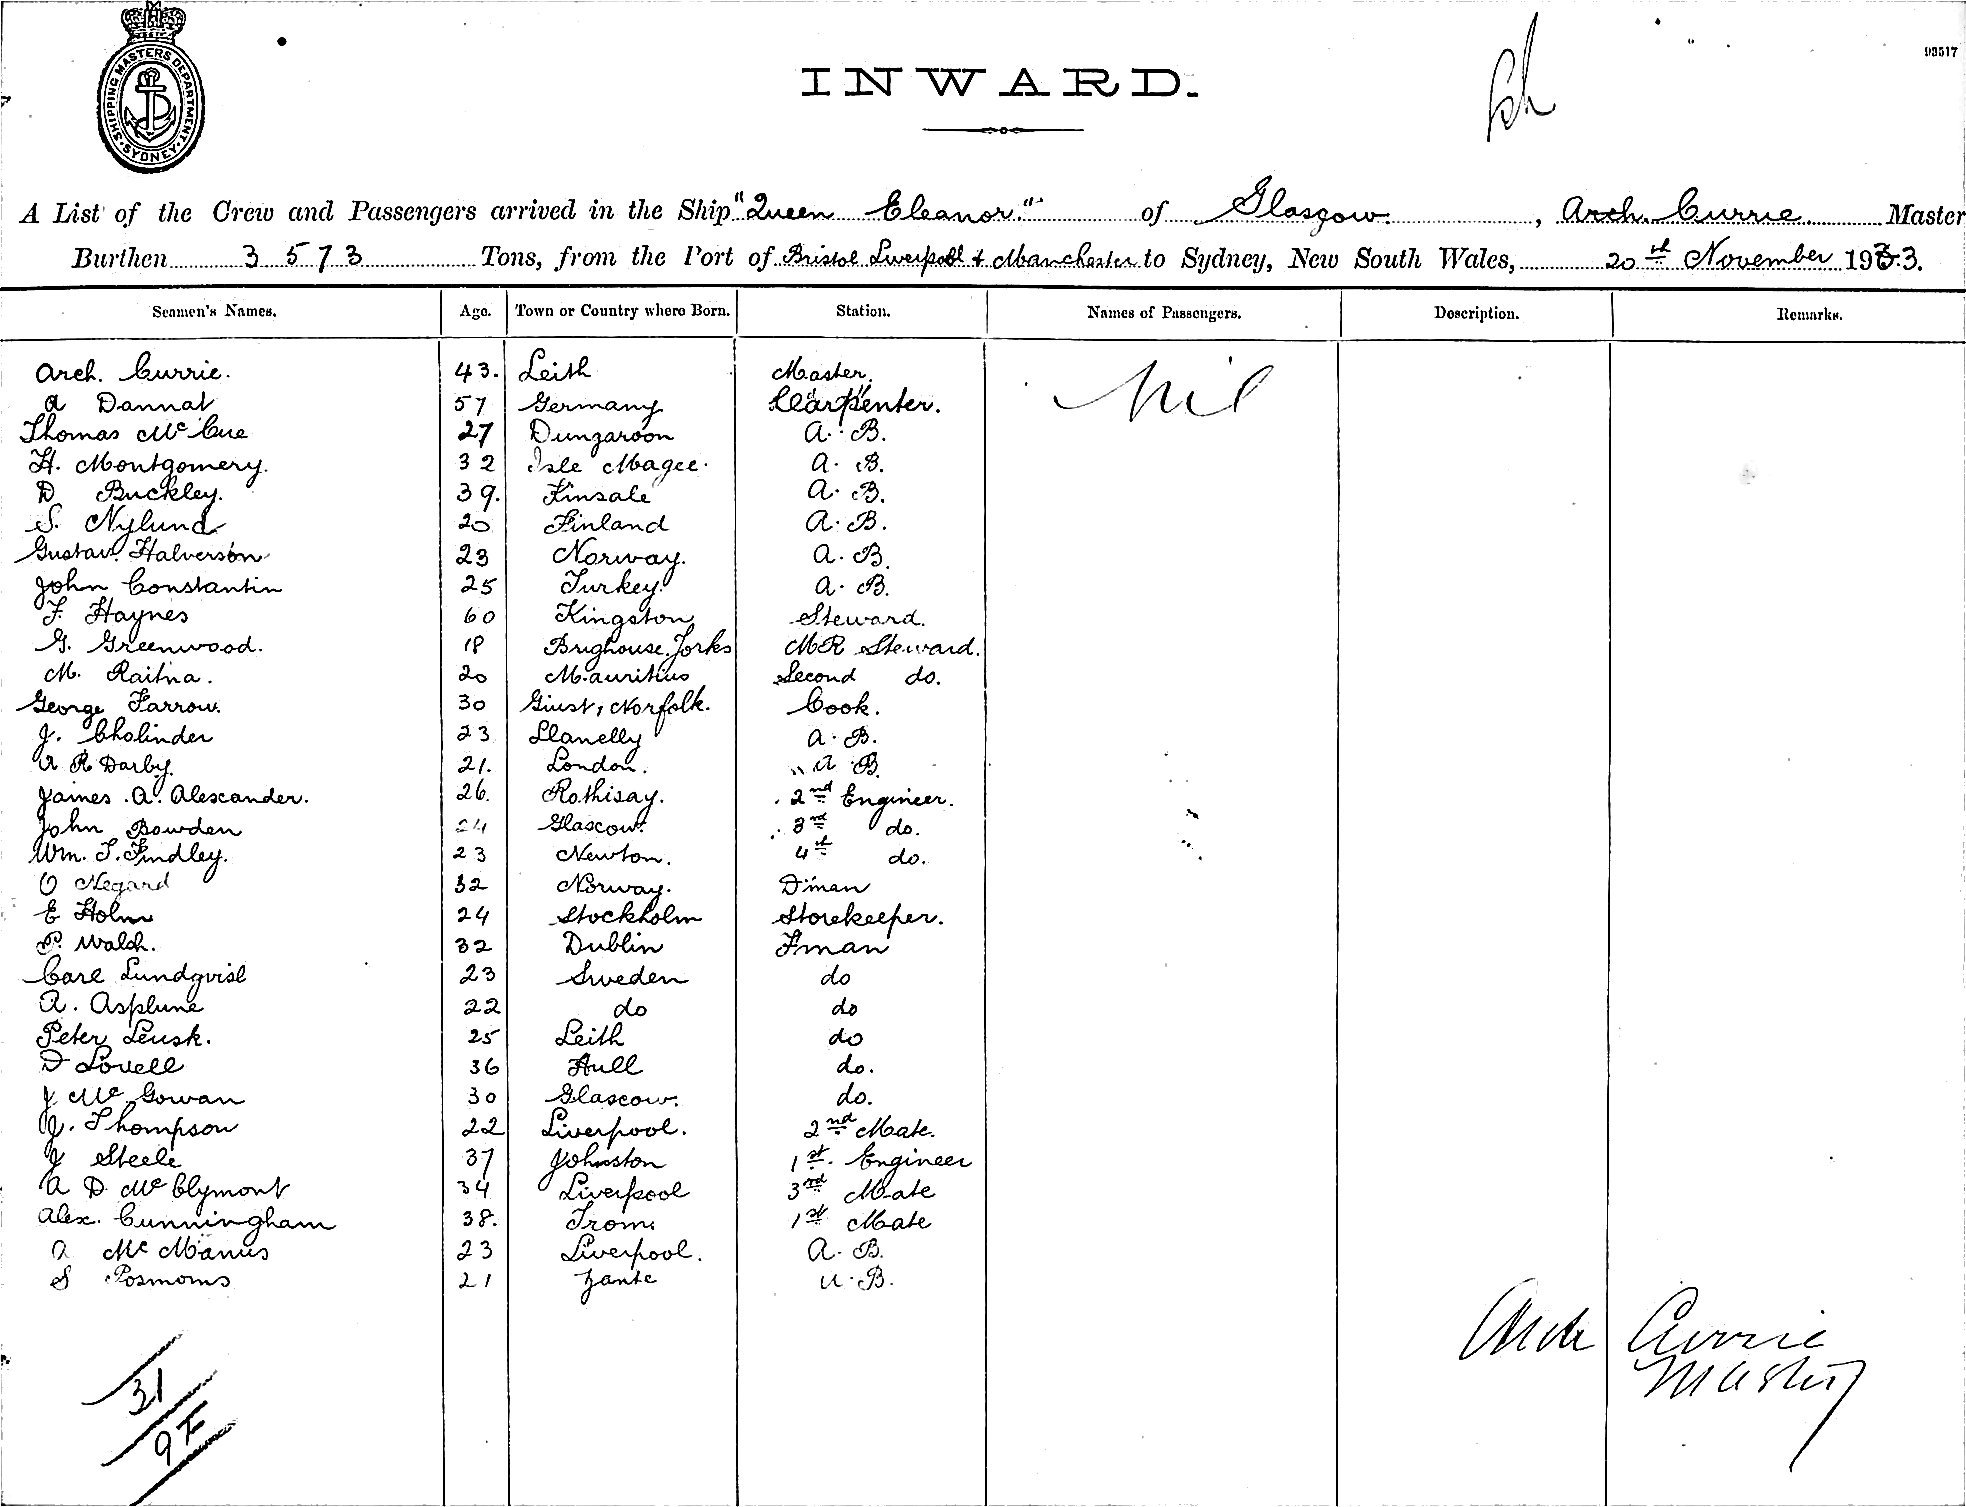 SHIPPING MASTERS DEPARTMENT
SYDNEY
93517
INWARD.
A List of the Crew and Passengers arrived in the Ship "Queen Eleanor." of Glasgow, Arch. Currie Master
Burthen 3573 Tons, from the Port of Bristol Liverpool & Manchester to Sydney, New South Wales, 20th November 1903.
Seamen's Names. Age. Town or Country where Born. Station. Names of Passengers. Description. Remarks.
Arch. Currie. 43. Leith Master. Nil
A Dannat 57 Germany Carpenter.
Thomas McCue 27 Dungaroon A. B.
H. Montgomery. 32 Isle Magee. A. B.
D Buckley. 39. Kinsale A. B.
S. Nylund 20 Finland A. B.
Gustav. Halverson 23 Norway. A. B.
John Constantin 25 Turkey. A. B.
F. Haynes 60 Kingston Steward.
G. Greenwood. 18 Brighouse. Yorks MR Steward.
M. Raitna. 20 Mauritius Second do.
George Farrow. 30 Guist, Norfolk. Cook.
J. Cholinder 23 Llanelly A. B.
A R Darby. 21. London. A B.
James. A. Alexander. 26. Rothisay. 2nd Engineer.
John Bowden 24 Glascow. 3rd do.
Wm. T. Findley. 23 Newton. 4th do.
O Negard 32 Norway. D'man
E Holm 24 Stockholm Storekeeper.
P. Walsh. 32 Dublin Fman
Carl Lundqvist 23 Sweden do
A. Asplune 22 do do
Peter Leusk. 25 Leith do
D Lovell 36 Hull do.
J McGowan 30 Glascow. do.
J. Thompson 22 Liverpool. 2nd Mate.
J Steele 37 Johnston 1st. Engineer
A D McClymont 34 Liverpool 3rd Mate
Alex. Cunningham 38. Trom. 1st Mate
A McManus 23 Liverpool. A. B.
S Posmoms 21 Zante A. B.
Arch Currie
Master
31
9F